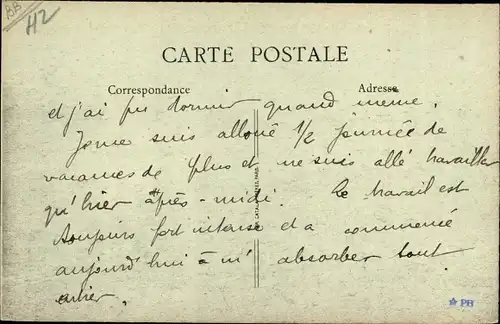 BB
H2
CARTE POSTALE
Correspondance
Adresse
et j'ai pu dormir quand meme.
Je me suis alloué 1/2 journée de
vacances de plus et ne suis allé travailler
qu'hier après-midi. Le travail est
toujours fort intense et a commencé
aujourd'hui à m'absorber tout
entier.
CATALA FRÈRES, PARIS
PH